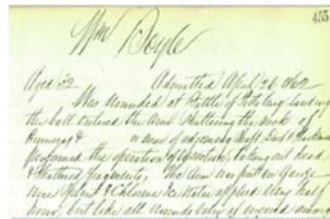 433
Wm Boyle
Aged 32 Admitted April 26 1862
Was wounded at Battle of Pittsburg Landing
the ball entered the arm shattering the neck of
Humerus & a area of adjacent shaft
performed the operation of resection, taking out head
& shattered fragments. The arm was put in Gauze
were Splint & Chlorine & Water applied
hour, but like all wounds